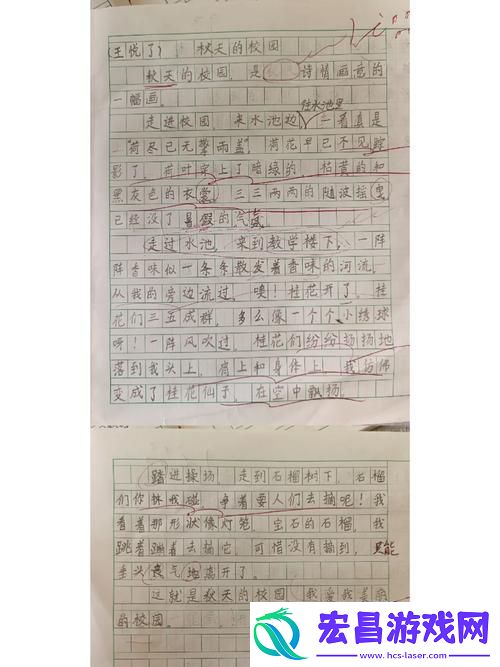 (王悦了) 秋天的校园
秋天的校园，是诗情画意的
一幅画。
往水池里
走进校园，来水池边，一看真是
“荷尽已无擎雨盖”，荷花早已不见踪
影了，荷叶穿上了暗绿的、枯黄的和
黑灰色的衣裳，三三两两的随波摇曳
已经没了暑假的气氛。
走过水池，来到教学楼下，一阵
阵香味似一条条散发着香味的河流，
从我的旁边流过。噢！桂花开了，桂
花们三五成群，多么像一个个小绣球
呀！一阵风吹过，桂花们纷纷扬扬地
落到我头上，肩上和身体上，我仿佛
变成了桂花仙子，在空中飘扬。
踏进操场，走到石榴树下，石榴
们你挤我碰，争着要人们去摘呢！我
看着那形状像灯笼，宝石的石榴，我
跳着蹦着去摘它，可惜没有摘到，只能
垂头丧气地离开了。
这就是秋天的校园，我爱我美丽
的校园。
宏昌游戏网
www.hcs-laser.com